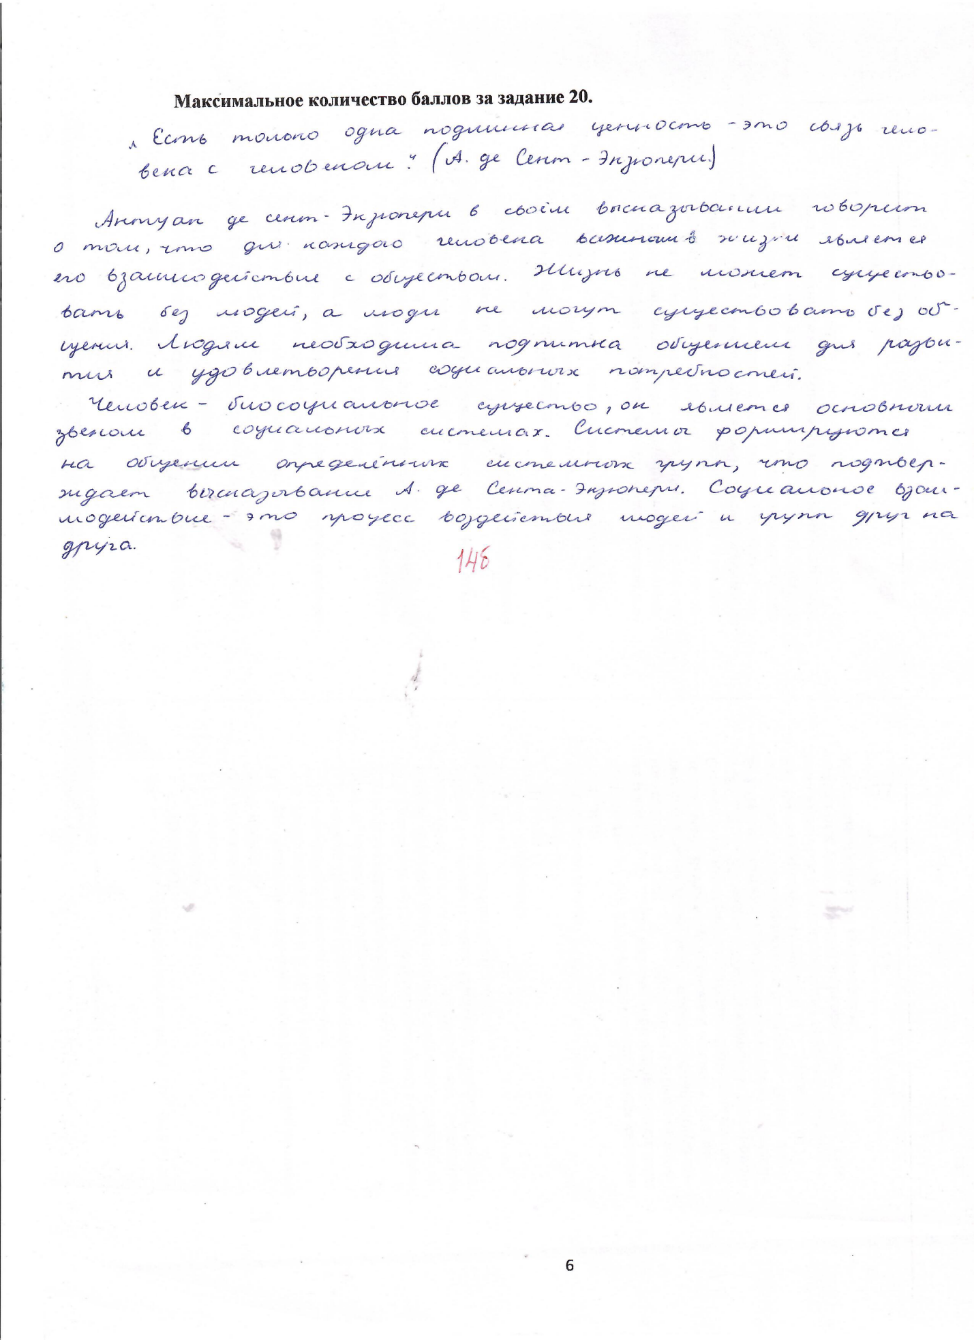 Максимальное количество баллов за задание 20.
„Есть только одна подлинная ценность - это связь чело-
века с человеком" (А. де Сент - Экзюпери.)
Антуан де сент - Экзюпери в своём высказывании говорит
о том, что для каждого человека важным в жизни является
его взаимодействие с обществом. Жизнь не может существо-
вать без людей, а люди не могут существовать без об-
щения. Людям необходима подпитка общением для разви-
тия и удовлетворения социальных потребностей.
Человек - биосоциальное существо, он является основным
звеном в социальных системах. Системы формируются
на общении определённых системных групп, что подтвер-
ждает высказывании А. де Сента - Экзюпери. Социальное взаи-
модействие - это процесс воздействия людей и групп друг на
друга.
14б
6